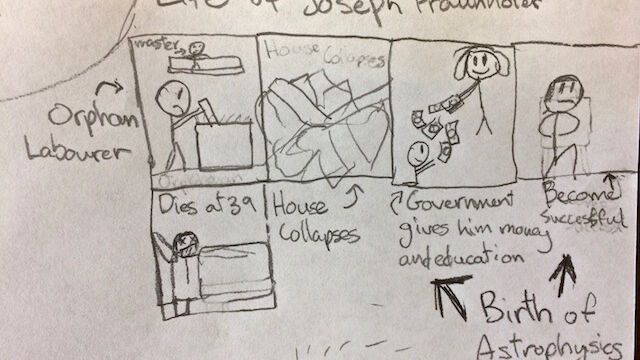 Life of Joseph Fraunhofer
master
House
Collapses
Orphan
Labourer
Dies at 39
House
Collapses
Government
gives him money
and education
Become
Successful
Birth of
Astrophysics